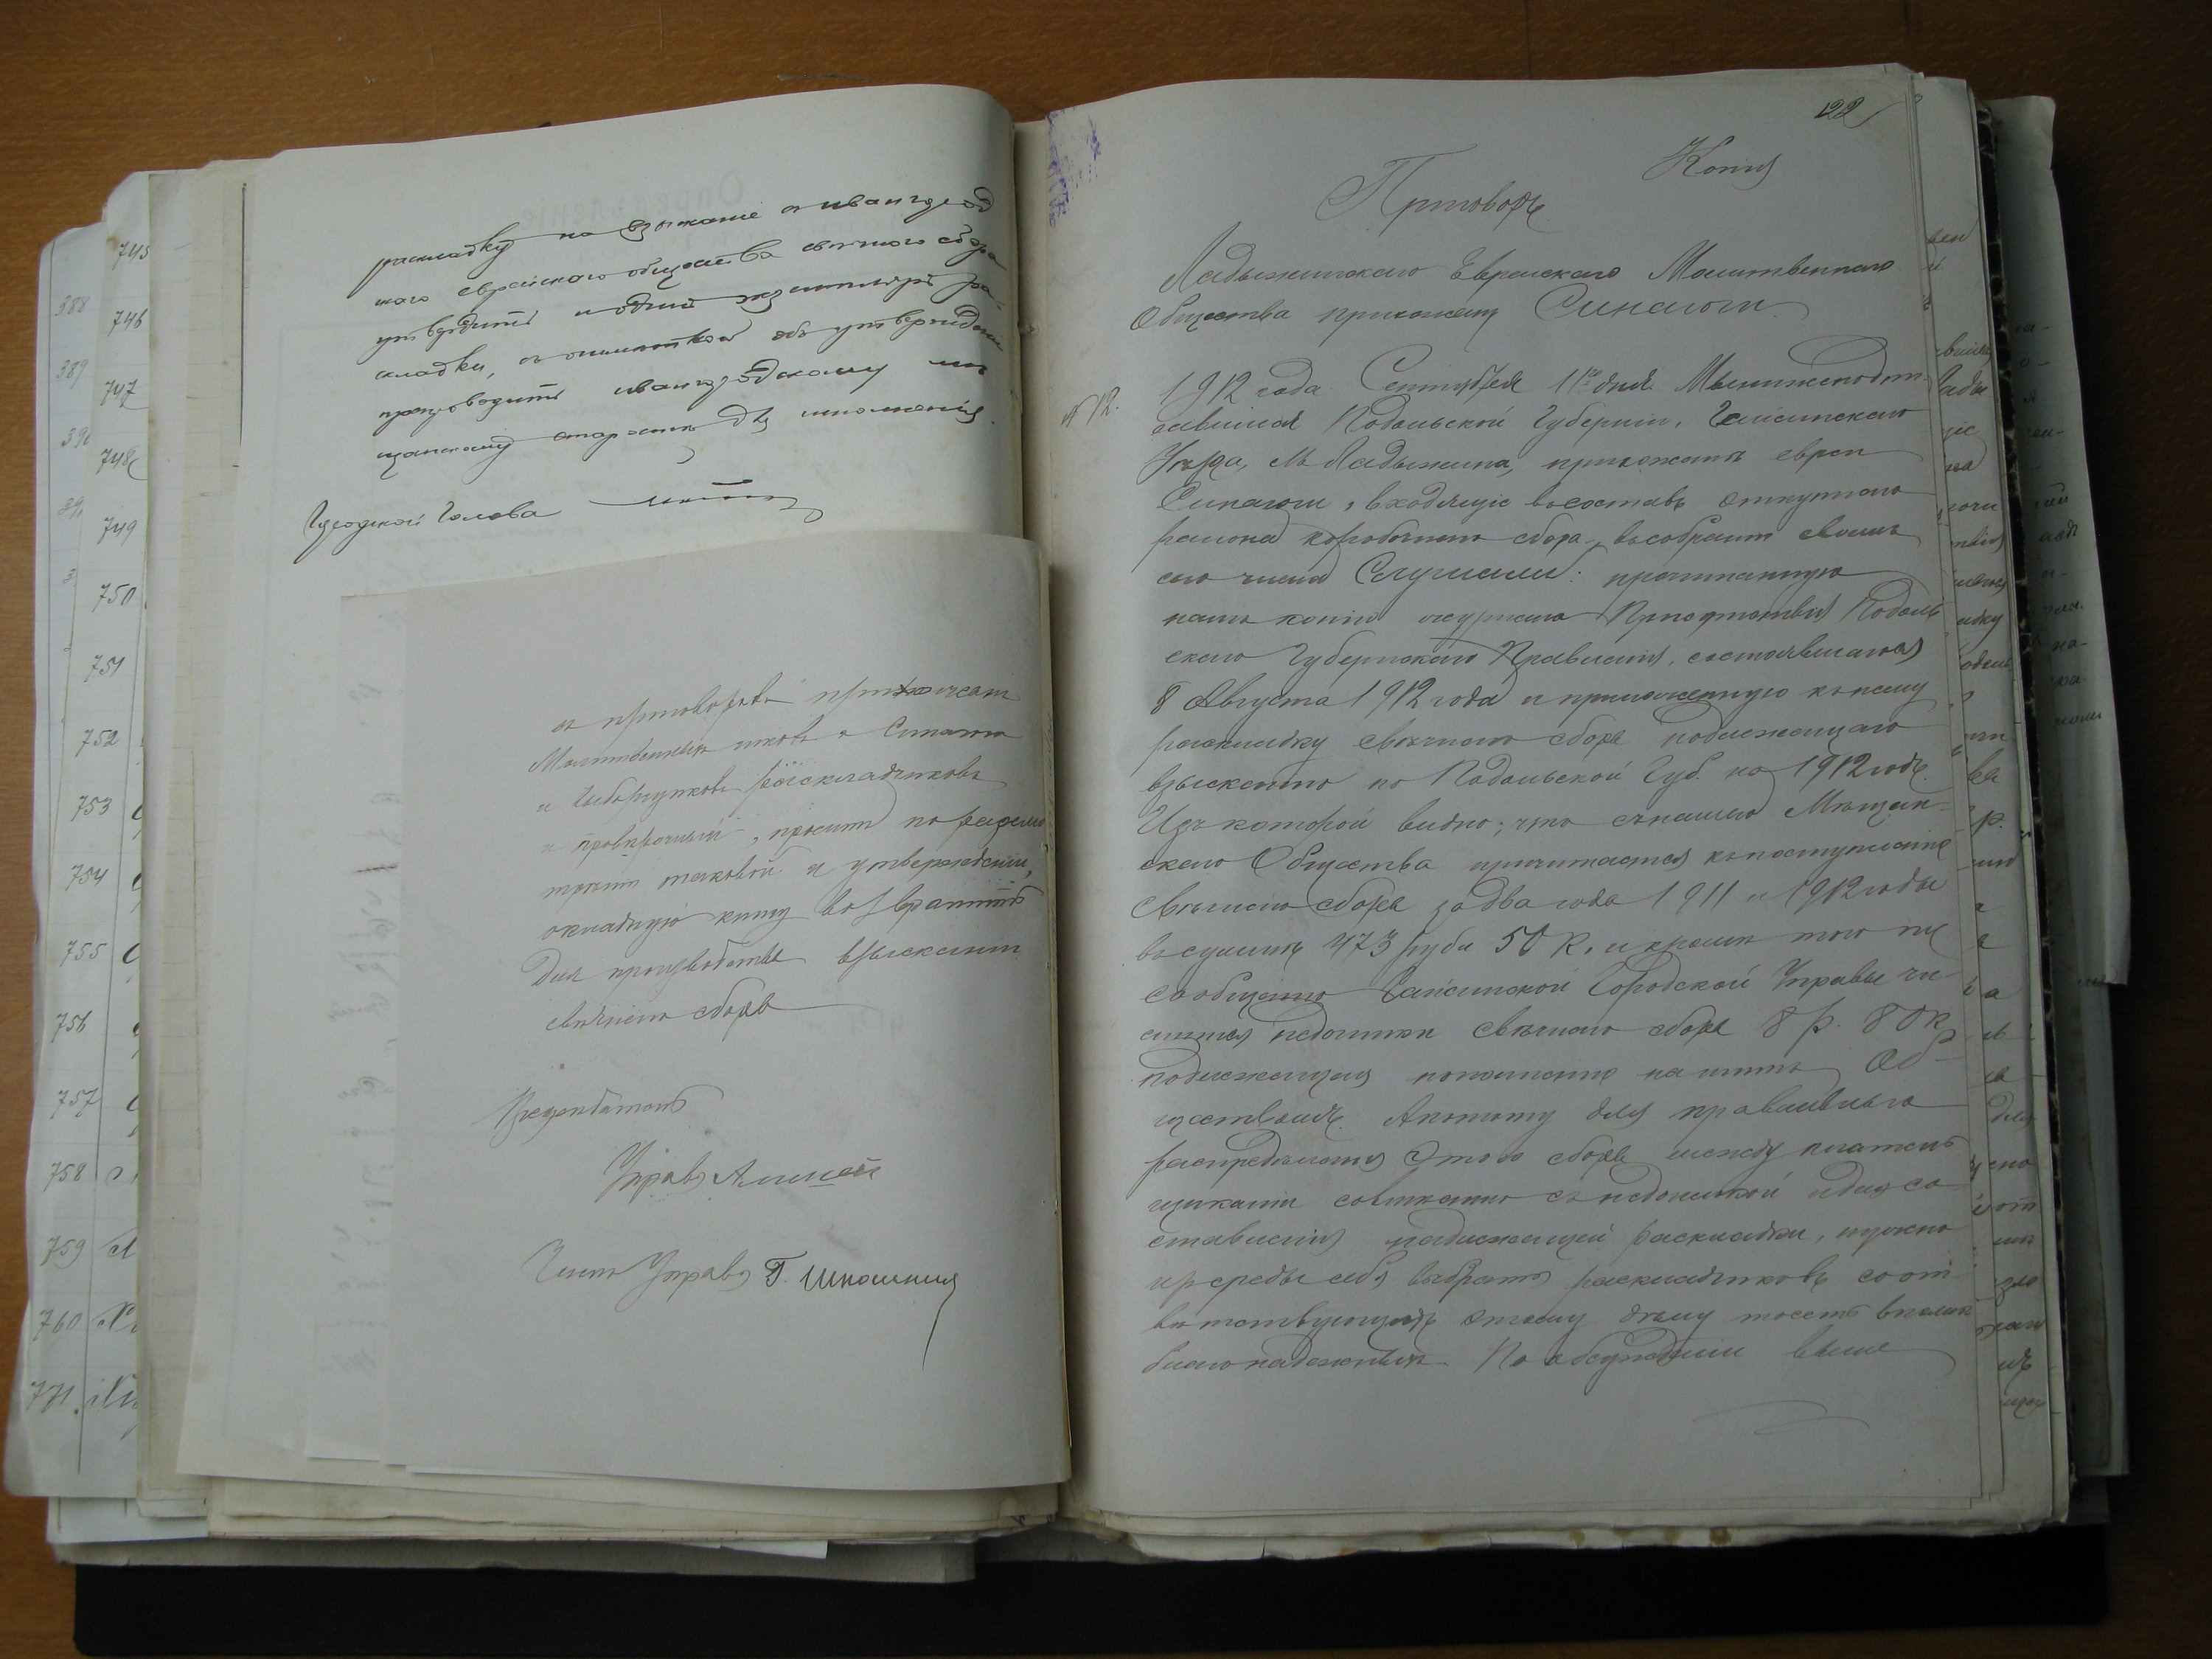 745
388
746
389
747
390
748
749
750
751
752
753
754
755
756
757
758
759
760
771
раскладку на взыскание с ивангород
ского еврейского общества свѣчного сбора
утвердить и одинъ экземпляръ ра-
складки, съ отмѣткой объ утвержденіи
препроводить ивангородскому мѣ
щанскому старостѣ для исполненія.
Городской Голова
и приговоровъ прихожанъ
Молитвенныхъ школъ и Синагоги
и раскладчиковъ
проситъ по разсмо
трѣніи таковой и утвержденіи,
окладную книгу возвратить
для производства взысканія
свѣчного сбора
Управ
Членъ Управы Г.
122
Копія
Приговоръ
Ладыжинскаго Еврейскаго Молитвеннаго
Общества прихожанъ Синагоги.
№12.
1912 года Сентября 11го дня. Мы нижеподпи-
савшіяся Подольской Губерніи, Гайсинскаго
Уѣзда, м. Ладыжина, прихожане евреи
Синагоги, входящіе въ составъ откупного
района коробочнаго сбора, въ собраніи своемъ
сего числа Слушали: прочитанную
намъ копію журнала Присутствія Подоль
скаго Губернскаго Правленія, состоявшагося
8 Августа 1912 года и приложенную къ нему
раскладку свѣчного сбора подлежащаго
взысканію по Подольской Губ. на 1912 годъ.
Изъ которой видно, что съ нашего Мѣщан-
скаго Общества причитается къ поступленію
Свѣчного сбора за два года 1911 и 1912 годы
въ суммѣ 473 руб. 50 к. и кромѣ того по
сообщенію Гайсинской Городской Управы чи-
слится недоимки свѣчного сбора 8 р. 80 к.
подлежащая пополненію нашимъ Об-
ществомъ. А потому для правильнаго
распредѣленія этого сбора между плательщ
щиками совмѣстно съ недоимкой и для со-
ставленія надлежащей раскладки, нужно
изъ среды себя выбрать раскладчиковъ соот-
вѣтствующихъ этому дѣлу то есть вполнѣ
благонадежныхъ. По обсужденіи выше